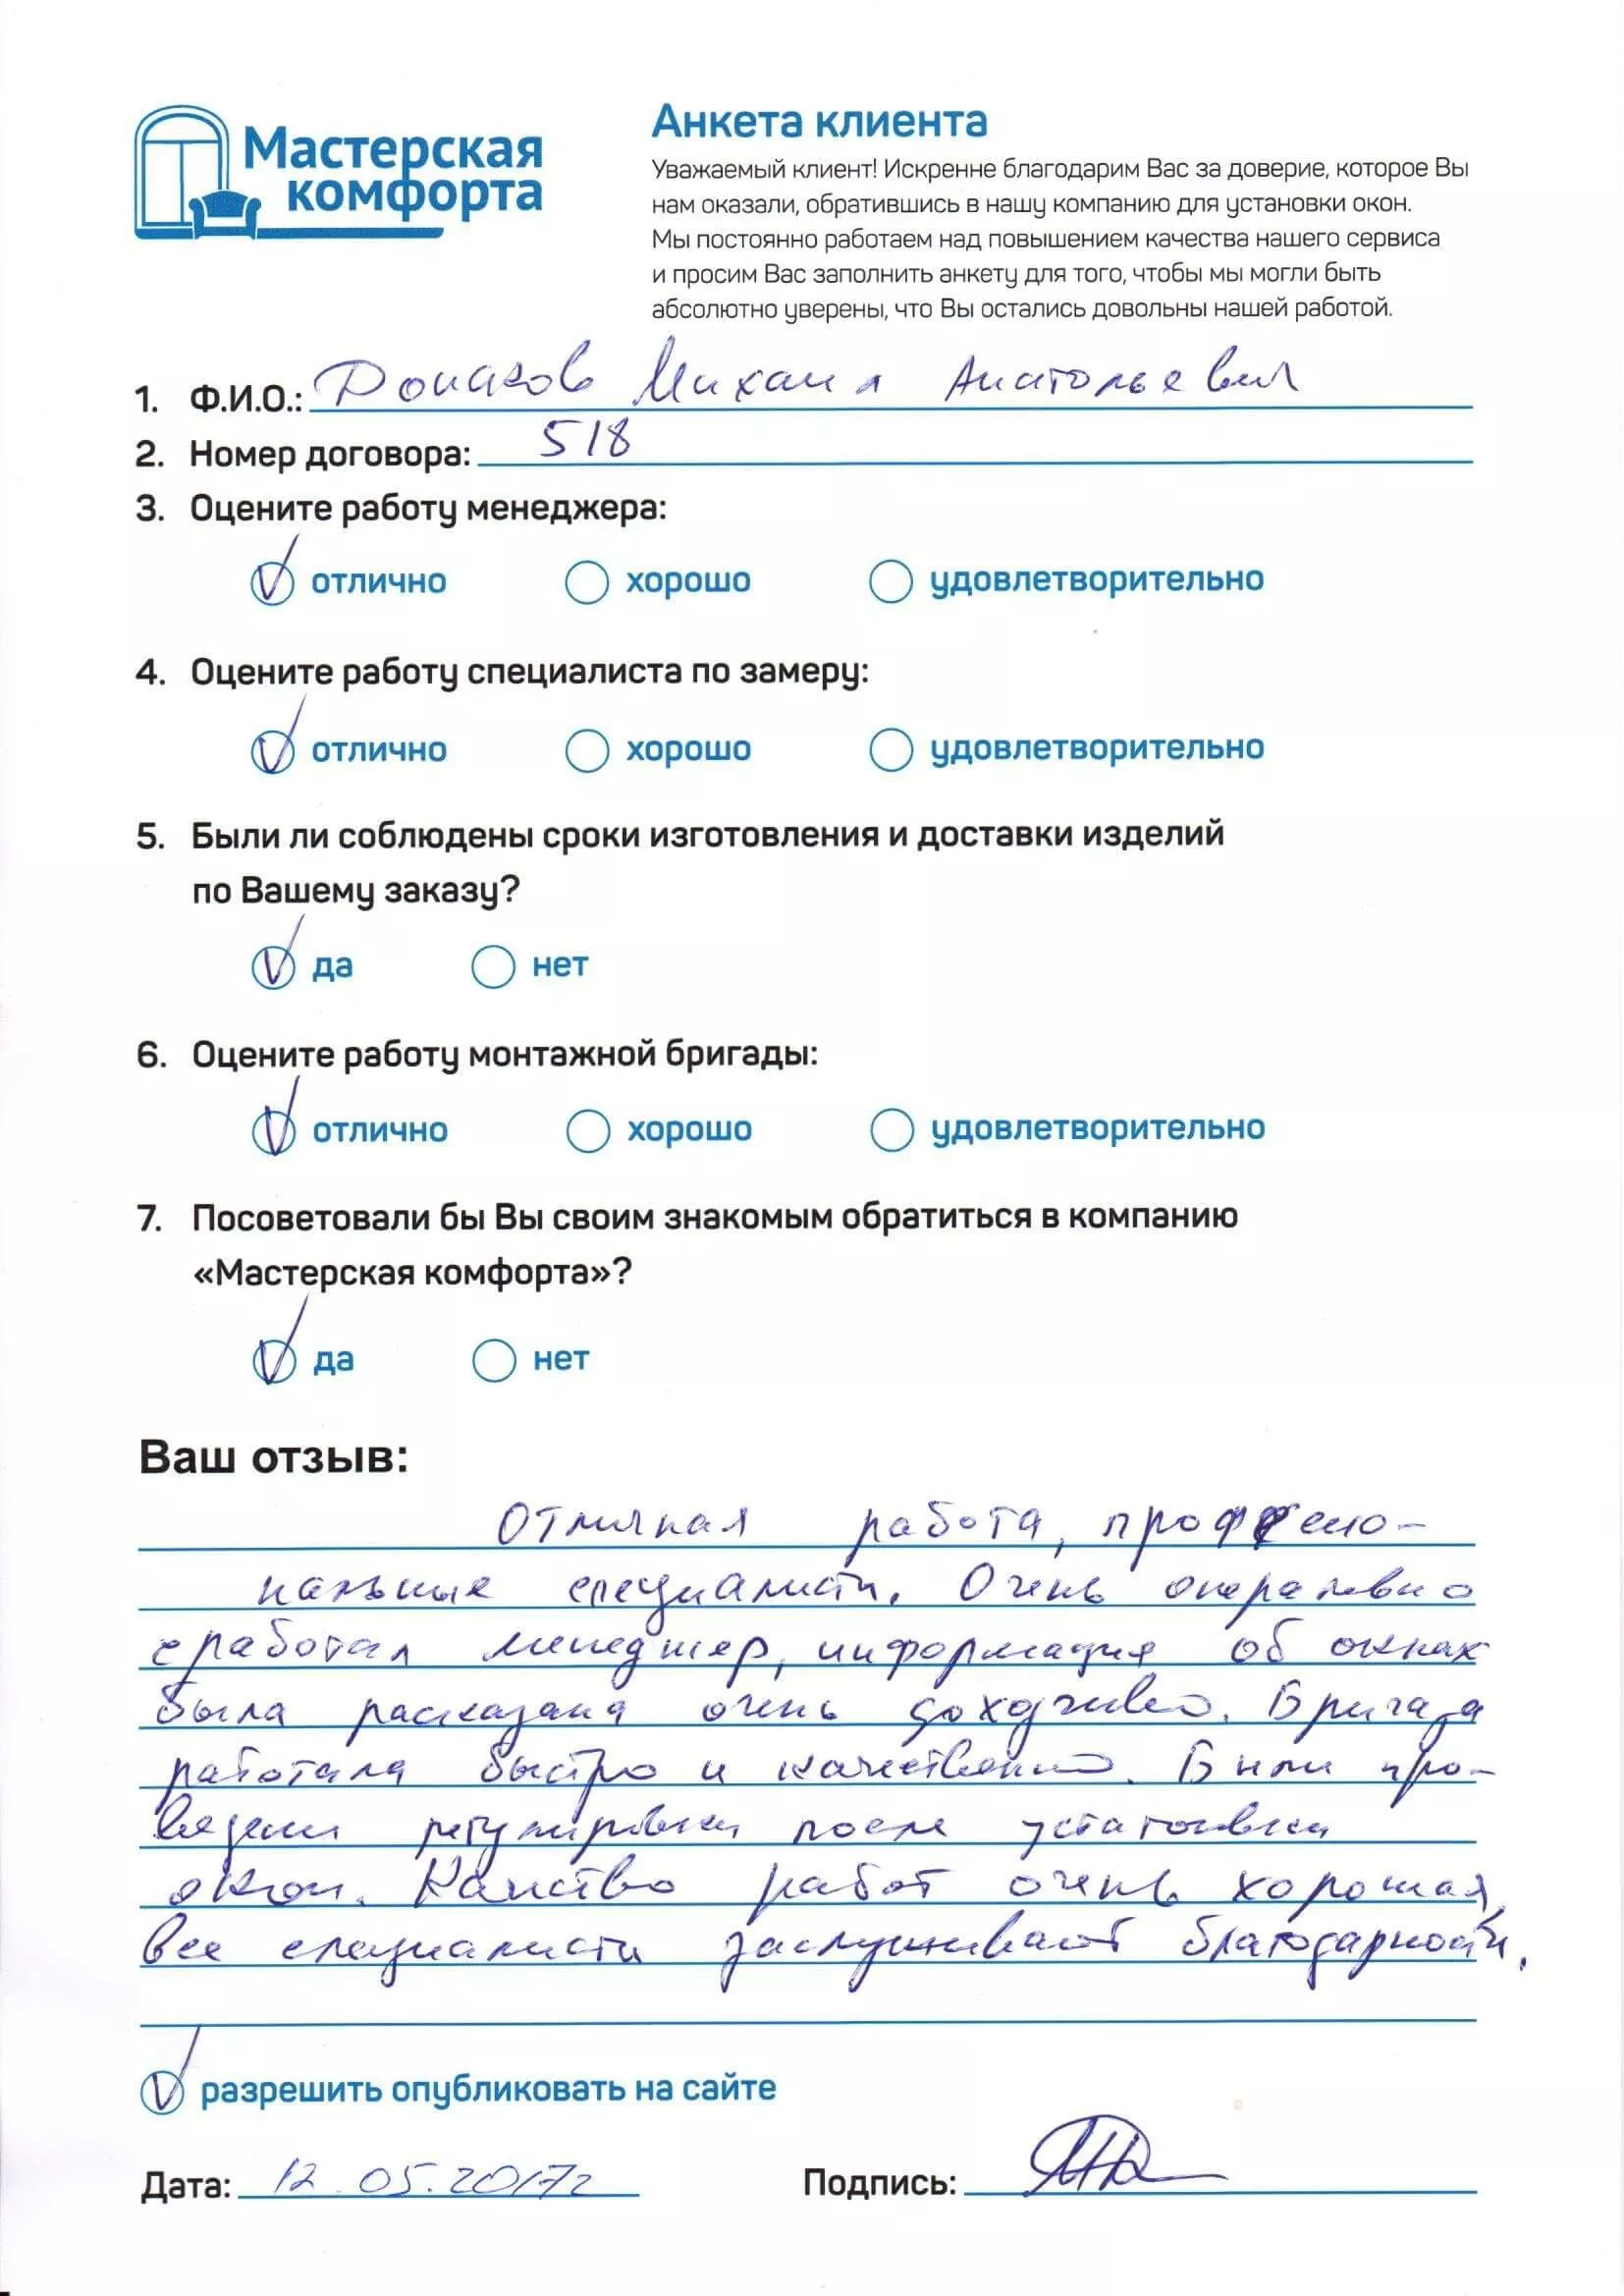 Мастерская
комфорта
Анкета клиента
Уважаемый клиент! Искренне благодарим Вас за доверие, которое Вы
нам оказали, обратившись в нашу компанию для установки окон.
Мы постоянно работаем над повышением качества нашего сервиса
и просим Вас заполнить анкету для того, чтобы мы могли быть
абсолютно уверены, что Вы остались довольны нашей работой.
1. Ф.И.О.: Михаил Анатольевич
2. Номер договора: 518
3. Оцените работу менеджера:
отлично хорошо удовлетворительно
4. Оцените работу специалиста по замеру:
отлично хорошо удовлетворительно
5. Были ли соблюдены сроки изготовления и доставки изделий
по Вашему заказу?
да нет
6. Оцените работу монтажной бригады:
отлично хорошо удовлетворительно
7. Посоветовали бы Вы своим знакомым обратиться в компанию
«Мастерская комфорта»?
да нет
Ваш отзыв:
Отличная работа,
специалисты. Очень оперативно
сработал менеджер, информация об окнах
была рассказана очень доходчиво. Бригада
работала быстро и качественно. Были про-
ведены регулировки после установки
окон. работ очень хорошая,
все специалисты заслуживают благодарности.
разрешить опубликовать на сайте
Дата: 12.05.2017г Подпись: